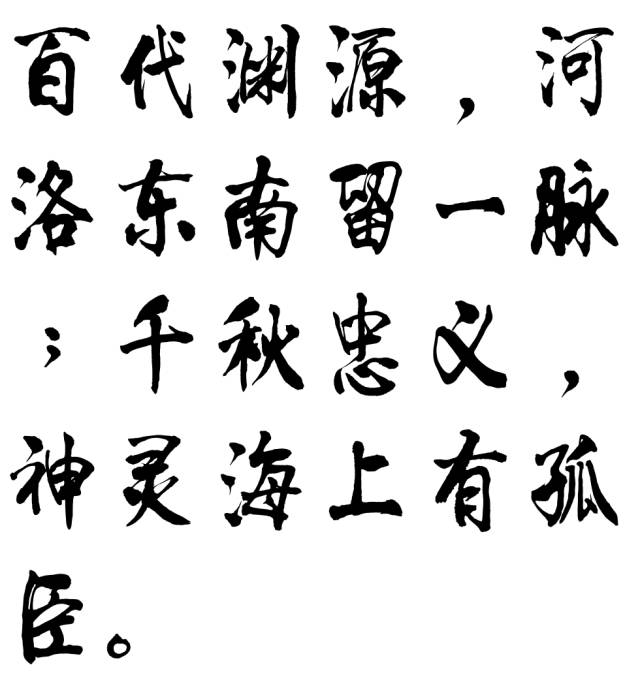 百代渊源，河
洛东南留一脉
；千秋忠义，
神灵海上有孤
臣。